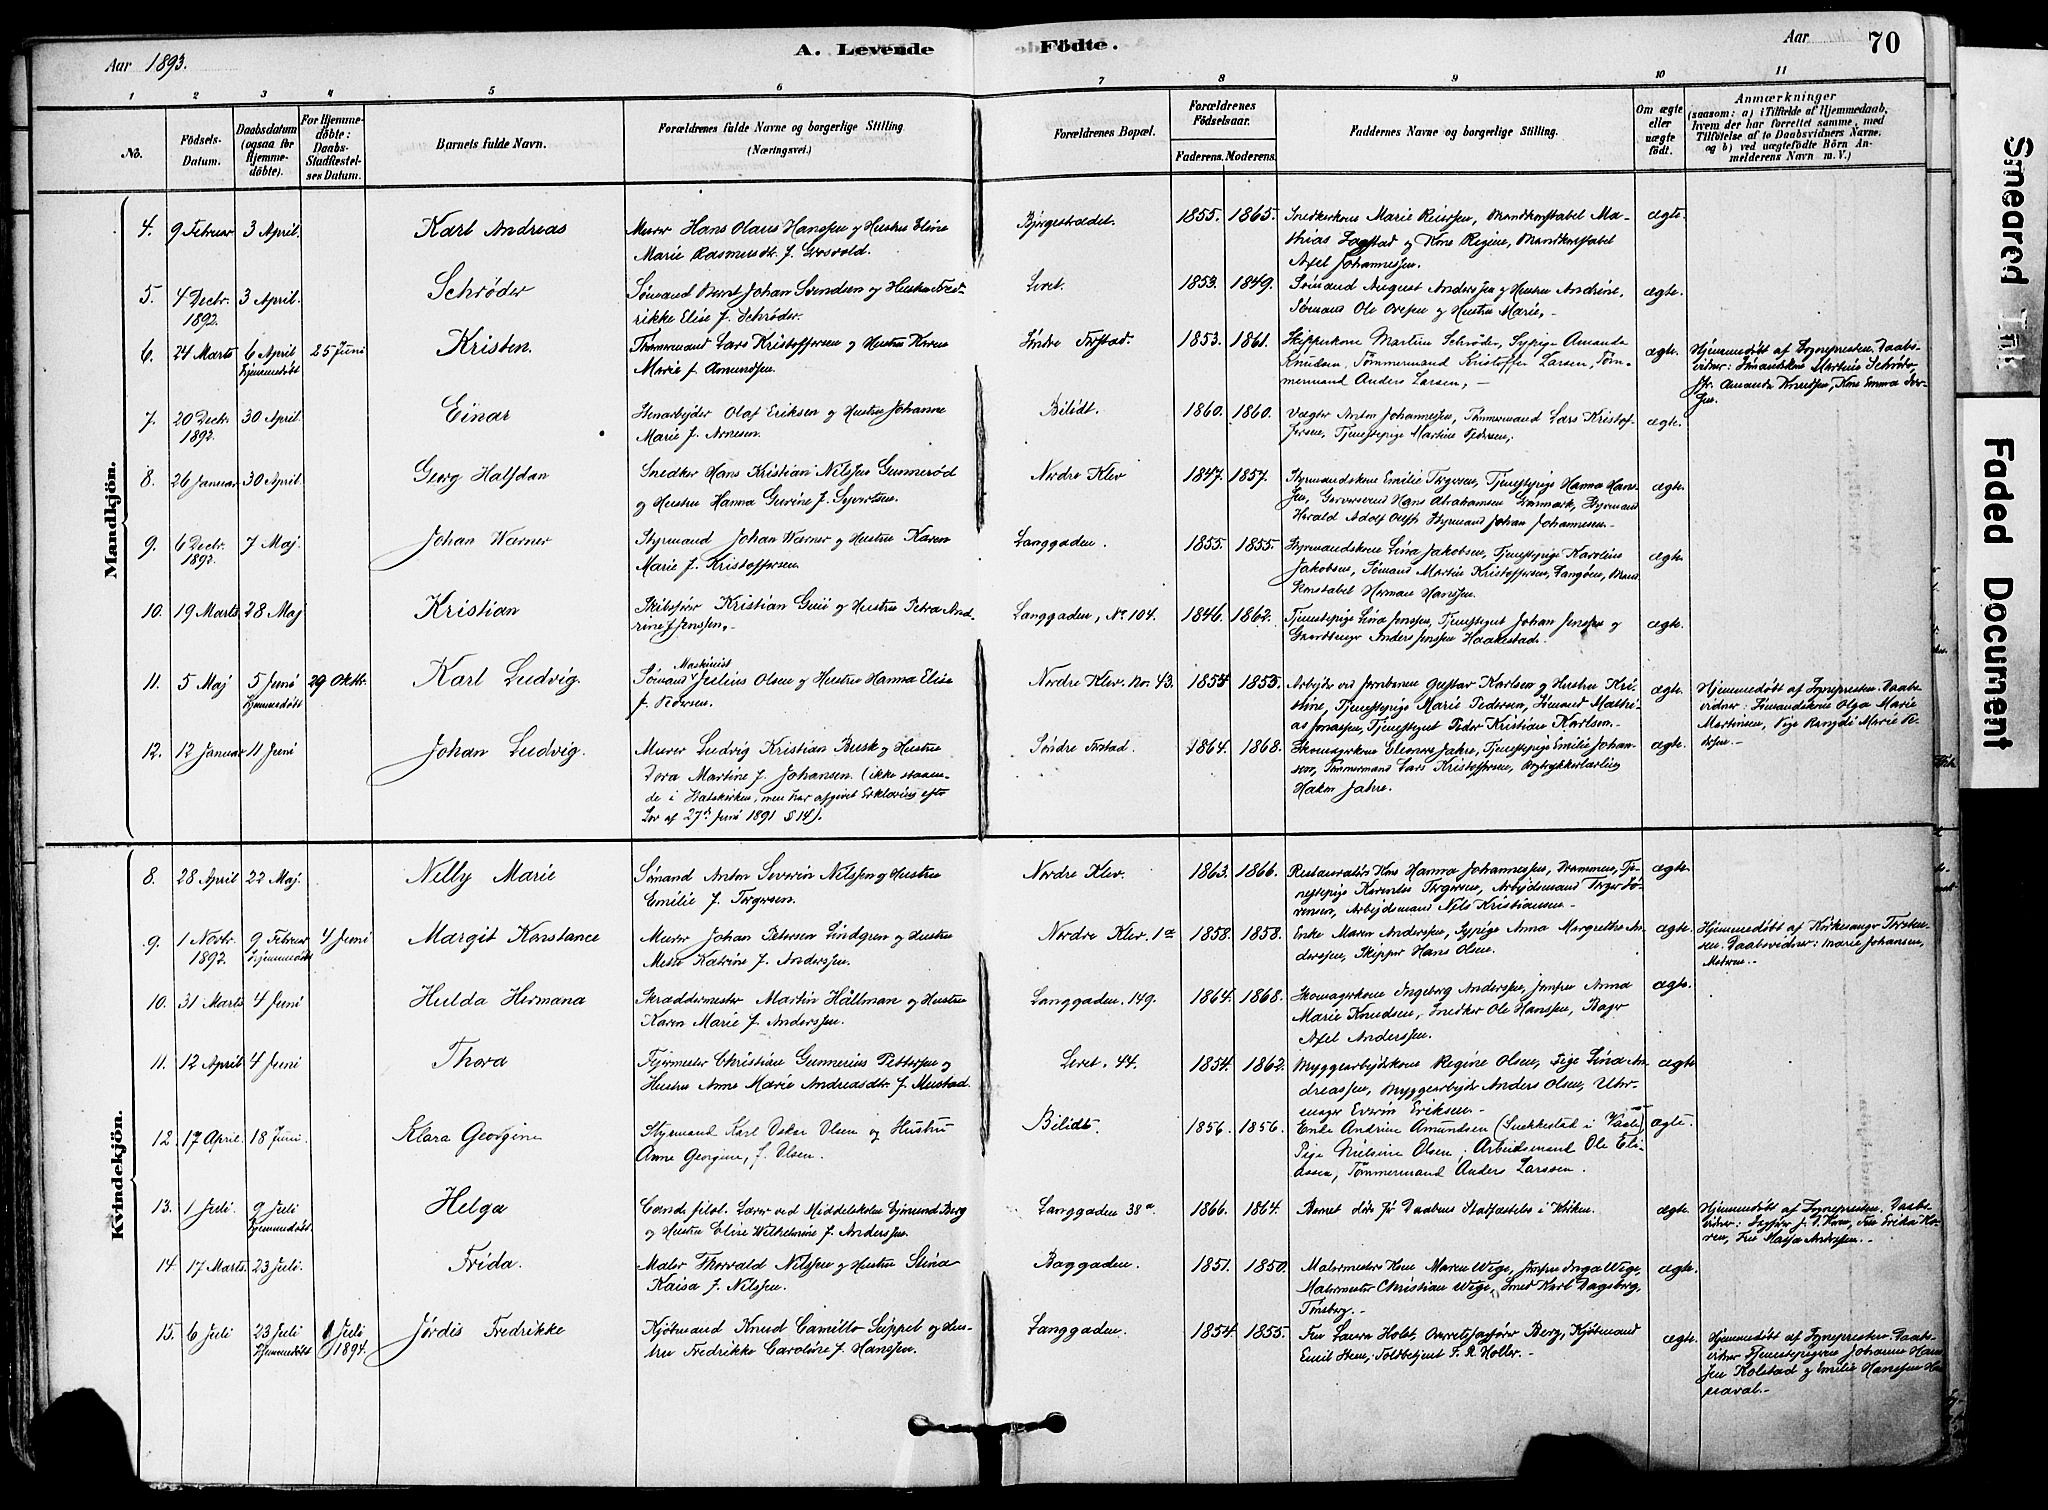 Aar 1893.
A. Levende
Födte.
Aar
70
1
2
3
4
5
6
7
8
9
10
11
No.
Födsels-
Datum.
Daabsdatum
(ogsaa for
Hjemme-
döbte).
For Hjemme-
döbte:
Daabs-
Stadfæstel-
ses Datum.
Barnets fulde Navn.
Forældrenes fulde Navne og borgerlige Stilling
(Næringsvei.)
Forældrenes Bopæl.
Forældrenes
Födselsaar.
Faderens. Moderens.
Faddernes Navne og borgerlige Stilling.
Om ægte
eller
uægte
födt.
Anmærkninger
(saasom: a) i Tilfælde af Hjemmedaab,
hvem der har forrettet samme, med
Tilföielse af to Daabsvidners Navne.
og b) ved uægtefödte Börn An-
melderens Navn m. V.)
Mandkjön.
4. 9 Februar 3 April. Karl Andreas Murer Hans Olaus Hanssen og Hustru Eline
Marie Rasmusdtr. f.
1855. 1865. Snedkerkone Marie Reiersen, Brandkonstabel Ma-
thias og Kone Regine, Brandkonstabel
Axel Johannessen.
ægte.
5. 4 Decbr. 1892. 3 April. Schrøder Sømand Bernt Johan Svendsen og Hustru Fred-
rikke Elise f. Schrøder.
Leret. 1853. 1849. Sømand August Anderssen og Hustru Andrine,
Sømand Ole Ovesen og Hustru Marie,
ægte.
6. 24 Marts 6 April Hjemmedøbt 25 Juni Kristen. Tømmermand Lars Kristoffersen og Hustru Karen
Marie f. Amundsen.
Søndre 1853. 1861. Skipperkone Martine Schrøder, Sypige Amanda
Knudsen, Tømmermand Kristoffer Larsen, Tøm-
mermand Anders Larsen,
ægte. Hjemmedøbt af Sognepresten. Daabs-
vidner: Martine Schrøder
Amanda Knudsen, Kone Emma
7. 20 Decbr. 1892. 30 April. Einar Stenarbejder Olaf Eriksen og Hustru Johanne
Marie f. Arnesen.
Bilidt. 1860. 1860. Vægter Anton Johannessen, Tømmermand Lars Kristof-
fersen, Tjenestepige Martine Pedersen,
ægte.
8. 26 Januar 30 April. Georg Halfdan Snedker Hans Kristian Nilssen Gunnerød
og Hustru Hanna f. Syvertsen.
Nordre Klev 1847. 1857. Styrmandskone Emilie Torgersen, Tjenestepige Hanna Han-
sen, Hans Abrahamsen Styrmand
Harald Adolf Styrmand Johan Johannesen
ægte.
9. 6 Decbr. 1892. 7 Maj. Johan Warner Styrmand Johan Warner og Hustru Karen
Marie f. Kristoffersen.
Langgaden. 1855. 1855. Styrmandskone Lina Jakobsen, Tjenestepige Karoline
Jakobsen, Sømand Martin Kristoffersen, Langøen, Brand
Konstabel Herman Hanssen.
ægte.
10. 19 Marts 28 Maj Kristian Skibsfører Kristian og Hustru Petra And-
rine f Jenssen.
Langgaden, No 104. 1846. 1862. Tjenestepige Lina Jenssen, Tjenestegut Johan Jenssen og
Gaardbruger Anders Jenssen Haakestad.
ægte.
11. 5 Maj 5 Juni Hjemmedøbt 29 Oktbr. Karl Ludvig. Maskinist
Sømand Julius Olsen og Hustru Hanna Elise
f. Pedersen.
Nordre Klev. No. 43. 1854 1855. Arbejder ved Jernbanen Gustav Karlsen og Hustru Kri-
stine, Tjenestepige Marie Pedersen, Sømand Mathi-
as Jonassen, Tjenestegut Peder Kristian Karlsen.
ægte. Hjemmedøbt af Sognepresten. Daabs-
vidner: Sømandskone Olga Marie
Martinsen, Pige Marie
12. 12 Januar 11 Juni Johan Ludvig. Murer Ludvig Kristian Busk og Hustru
Dora Martine f. Johansen. (ikke staaen-
de i Statskirken, men har afgivet Erklæring efter
Lov af 27de Juni 1891 § 14).
Søndre 1864. 1868. Skomagerkone Eleonore Jahre, Tjenestepige Emilie Johan-
sen, Tømmermand Lars Kristoffersen,
Hakon Jahre.
ægte.
Kvindekjön.
8. 28 April 22 Maj. Nelly Marie Sømand Anton Severin Nilssen og Hustru
Emilie f. Torgersen.
Nordre Klev. 1863. 1866. Restauratør Kone Hanna Johannessen, Drammen, Tje-
nestepige Torgersen, Arbejdsmand Torger Sø-
rensen, Arbejdsmand Nils Kristiansen
ægte.
9. 1 Novbr. 1892. 9 Februar Hjemmedøbt 4 Juni Margit Konstance Murer Johan Petersen Lindgren og Hustru
Mette Katrine f. Anderssen.
Nordre Klev. 1a 1858. 1858. Enke Maren Anderssen, Sypige Anna Margrethe An-
derssen, Skipper Hans Olsen.
ægte. Hjemmedøbt af Kirkesanger Torsten-
sen. Daabsvidner: Marie Johansen,
10. 31 Marts 4 Juni Hulda Hermana Skræddermester Martin Hållman og Hustru
Karen Marie f. Anderssen.
Langgaden. 149. 1864. 1868. Skomagerkone Ingeborg Anderssen, Jomfru Anna
Marie Knudsen, Snedker Ole Hanssen, Bager
Axel Anderssen.
ægte.
11. 12 April 4 Juni Thora Fyrmester Christian Gunnerius Pettersen og
Hustru Anne Marie Andreasdtr. f.
Leret. 44. 1854. 1862. Bryggearbejderkone Regine Olsen, Pige Lina An-
dreassen, Bryggearbejder Anders Olsen, Uhr-
mager Even Eriksen
ægte
12. 17 April. 18 Juni. Klara Georgine Styrmand Karl Oskar Olsen og Hustru
Anne Georgine, f. Olsen.
Bilidt. 1856. 1856. Enke Andrine Amundsen (Snekkestad i Vaale)
Pige Nielsine Olsen, Arbeidsmand Ole Eli-
assen, Tømmermand Anders Larssen.
ægte.
13. 1 Juli. 9 Juli Hjemmedøbt. Helga Cand. filol. Lærer ved Middelskolen Ejmund Berg
og Hustru Elise Wilhelmine f. Anderssen.
Langgaden 38a. 1866. 1864. Barnet døde før Daabens Stadfæstelse i Kirken.
ægte. Hjemmedøbt af Sognepresten. Daabs-
vidner:
Fru Andressen.
14. 17 Marts. 23 Juli. Frida. Maler Thorvald Nilssen og Hustru Stina
Kaisa f. Nilssen.
Baggaden. 1851. 1850. Malermesters Kone Maren Wege, Jomfru Inga Wege,
Malermester Christian Wege, Smed Karl Dagsberg,
Tønsberg.
ægte.
15. 6 Juli 23 Juli Hjemmedøbt Juli 1894. Jørdis Fredrikke Kjøbmand Knud Camillo Suppel og Hu-
stru Fredrikke Caroline f. Hanssen.
Langgaden. 1854. 1855. Fru Laura Holst Overretssagfører Berg, Kjøbmand
Emil Toldbetjent F. R. Holler.
ægte. Hjemmedøbt af Sognepresten. Daabs-
vidner Tjenestepigerne Johanne Han-
sen Kolstad og Emilie Hanssen
Smeared Tik
Faded Document